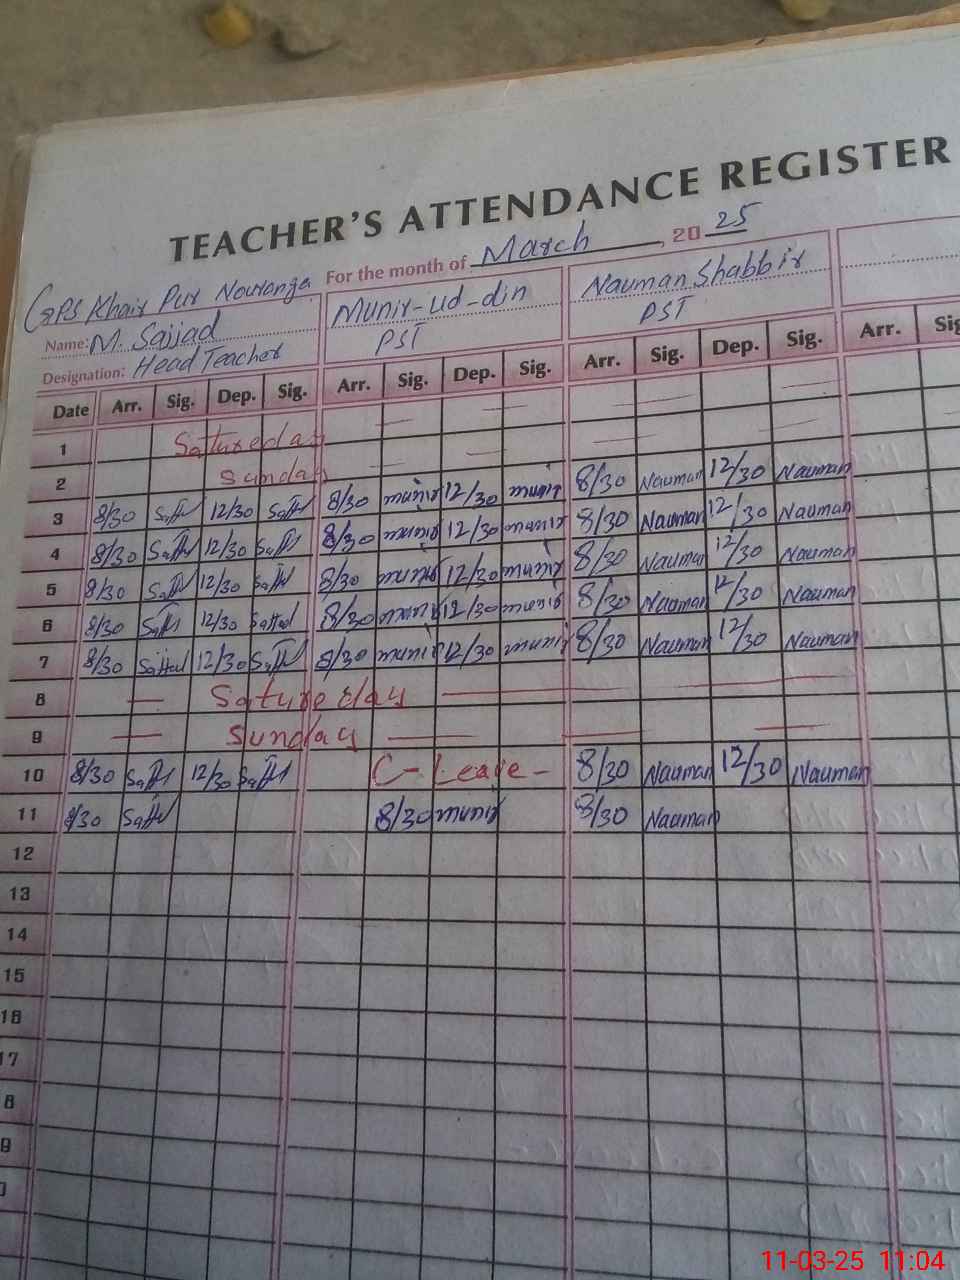 TEACHER'S ATTENDANCE REGISTER
For the month of March, 2025
GPS Khair Pur Nouranga
Name: M. Sajjad Munir-ud-din Nauman Shabbir
Designation: Head Teacher PST PST
Date Arr. Sig. Dep. Sig. Arr. Sig. Dep. Sig. Arr. Sig. Dep. Sig. Arr. Sig
1 Satureday
2 Sunday
3 8/30 12/30 8/30 munir 12/30 munir 8/30 Nauman 12/30 Nauman
4 8/30 12/30 8/30 munir 12/30 munir 8/30 Nauman 12/30 Nauman
5 8/30 12/30 8/30 munir 12/30 munir 8/30 Nauman 12/30 Nauman
6 8/30 12/30 8/30 munir 12/30 munir 8/30 Nauman 12/30 Nauman
7 8/30 12/30 8/30 munir 12/30 munir 8/30 Nauman 12/30 Nauman
8 — Satureday —
9 — Sunday —
10 8/30 12/30 C-Leave- 8/30 Nauman 12/30 Nauman
11 8/30 8/30 munir 8/30 Nauman
12
13
14
15
16
17
8
9
11-03-25 11:04